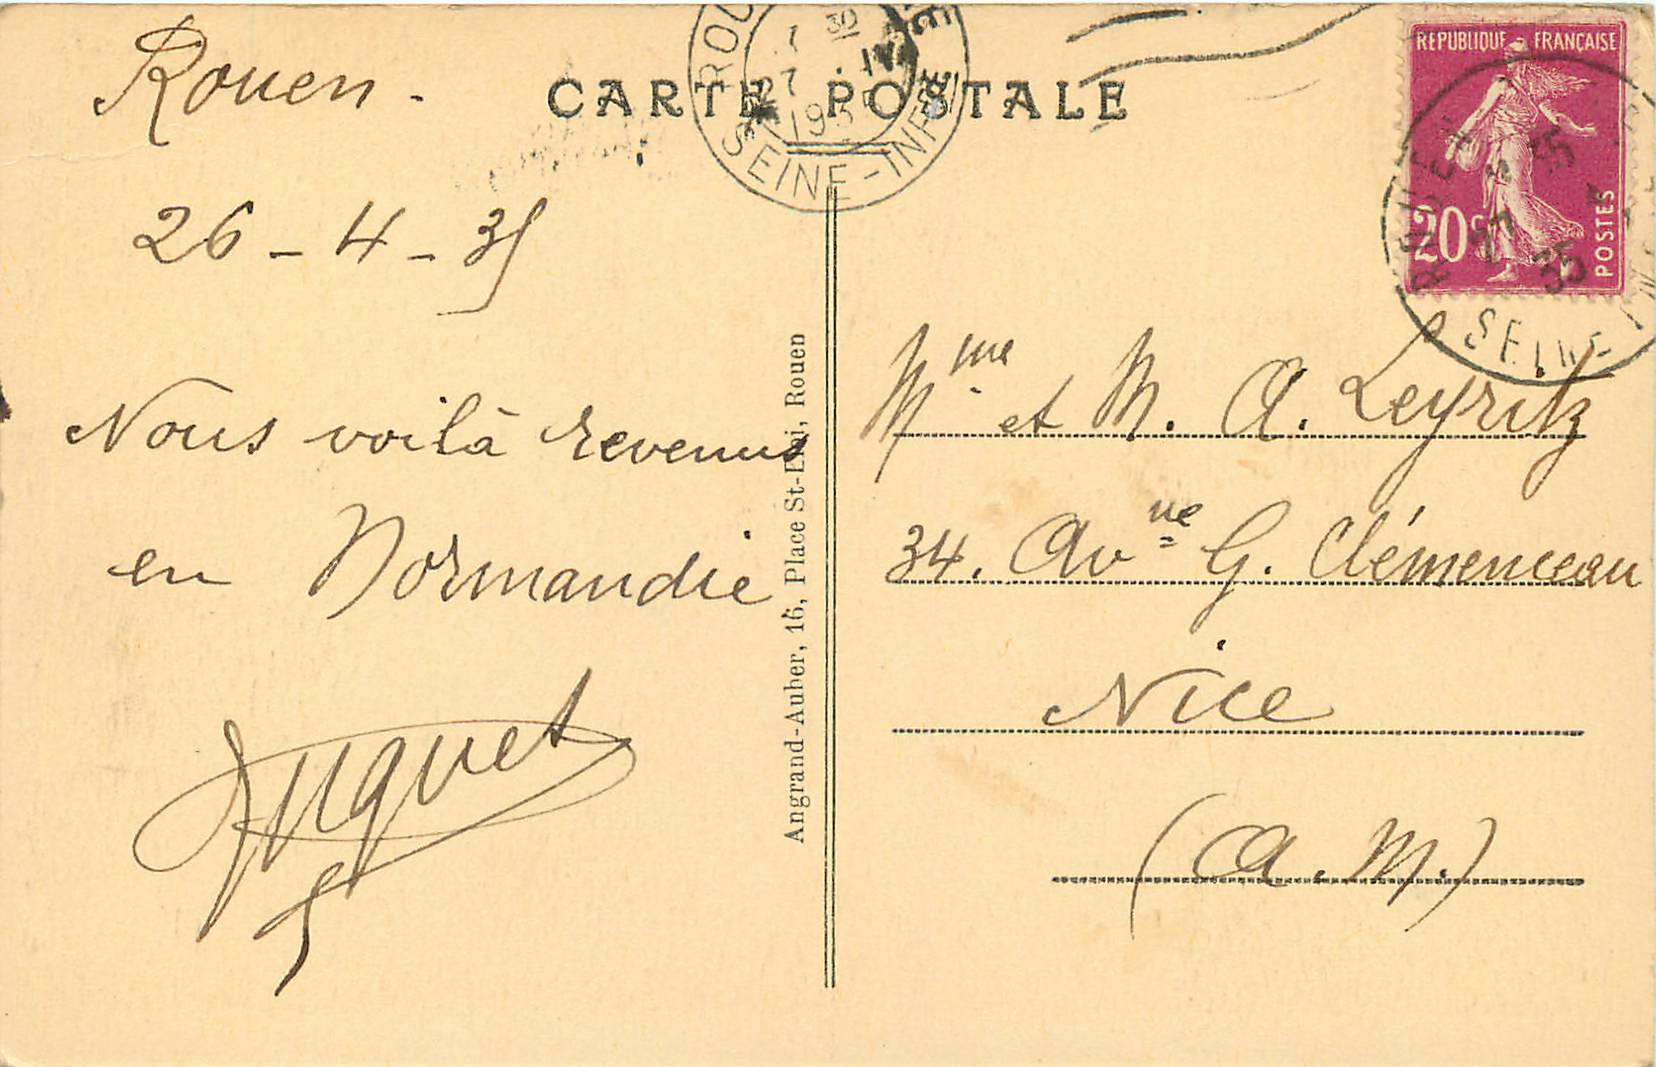 CARTE POSTALE
Rouen.
26 - 4 - 35
Nous voilà revenus
en Normandie
Huguet
Angrand-Auber, 16, Place St-Eloi, Rouen
7 30
27 . IV
1935
SEINE-INFRE
REPUBLIQUE FRANÇAISE
20c
POSTES
ROUEN
27
35
SEINE
Mme et M. A. Leyritz
34. Avnue G. Clémenceau
Nice
(A. M.)